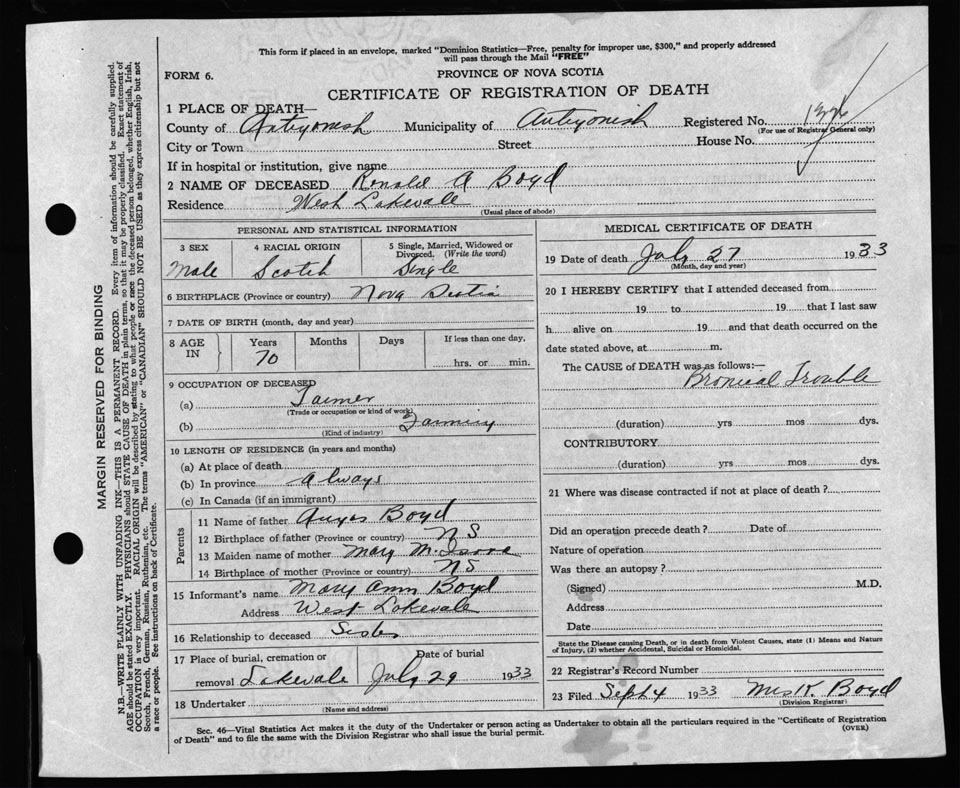 This form if placed in an envelope, marked "Dominion Statistics—Free, penalty for improper use, $300," and properly addressed
will pass through the Mail "FREE"
FORM 6.
PROVINCE OF NOVA SCOTIA
CERTIFICATE OF REGISTRATION OF DEATH
1 PLACE OF DEATH—
County of Antigonish Municipality of Antigonish Registered No.
(For use of Registrar General only)
City or Town Street House No.
If in hospital or institution, give name
2 NAME OF DECEASED Ronald A Boyd
Residence West Lakevale
(Usual place of abode)
PERSONAL AND STATISTICAL INFORMATION
3 SEX 4 RACIAL ORIGIN 5 Single, Married, Widowed or
Divorced. (Write the word)
Male Scotch Single
6 BIRTHPLACE (Province or country) Nova Scotia
7 DATE OF BIRTH (month, day and year)
8 AGE IN Years Months Days If less than one day,
70 hrs. or min.
9 OCCUPATION OF DECEASED
(a) Farmer
(Trade or occupation or kind of work)
(b) Farming
(Kind of industry)
10 LENGTH OF RESIDENCE (in years and months)
(a) At place of death
(b) In province Always
(c) In Canada (if an immigrant)
Parents
11 Name of father Angus Boyd
12 Birthplace of father (Province or country) N S
13 Maiden name of mother Mary M.
14 Birthplace of mother (Province or country) N S
15 Informant's name Mary Ann Boyd
Address West Lakevale
16 Relationship to deceased Sister
17 Place of burial, cremation or Date of burial
removal Lakevale July 29 1933
18 Undertaker
(Name and address)
MEDICAL CERTIFICATE OF DEATH
19 Date of death July 27 1933
(Month, day and year)
20 I HEREBY CERTIFY that I attended deceased from
19 to 19 that I last saw
h alive on 19 and that death occurred on the
date stated above, at m.
The CAUSE OF DEATH was as follows:—
Bronical Trouble
(duration) yrs mos dys.
CONTRIBUTORY
(duration) yrs. mos. dys.
21 Where was disease contracted if not at place of death?
Did an operation precede death? Date of
Nature of operation
Was there an autopsy?
(Signed) M.D.
Address
Date
State the Disease causing Death, or in death from Violent Causes, state (1) Means and Nature
of Injury, (2) whether Accidental, Suicidal or Homicidal.
22 Registrar's Record Number
23 Filed Sept 4 1933 Mrs K. Boyd
(Division Registrar)
Sec. 46—Vital Statistics Act makes it the duty of the Undertaker or person acting as Undertaker to obtain all the particulars required in the "Certificate of Registration
of Death" and to file the same with the Division Registrar who shall issue the burial permit.
(OVER)
MARGIN RESERVED FOR BINDING
N.B.—WRITE PLAINLY WITH UNFADING INK—THIS IS A PERMANENT RECORD. Every item of information should be carefully supplied.
AGE should be stated EXACTLY. PHYSICIANS should STATE CAUSE OF DEATH in plain terms, so that it may be properly classified. Exact statement of
OCCUPATION is very important. RACIAL ORIGIN will be described by stating to what people or race the deceased person belonged, whether English, Irish,
Scotch, French, German, Russian, Ruthenian, etc. The terms "AMERICAN" or "CANADIAN" SHOULD NOT BE USED as they express citizenship but not
a race or people. See instructions on back of Certificate.